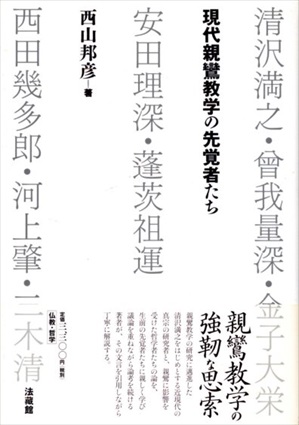 清沢満之・曾我量深・金子大栄
現代親鸞教学の先覚者たち
安田理深・蓬茨祖運
西山邦彦―著
西田幾多郎・河上肇・三木清
親鸞教学の
強靭な思索
親鸞教学の研究に邁進した
清沢満之をはじめとする近現代の
真宗の研究者と、親鸞に影響を
受けた哲学者たちの論を、
生前の先覚者たちに親しく学び
議論を重ねながら論考を続ける
著者が、その文言を引用しながら
丁寧に解説する。
定価三三〇〇円(税別)
仏教・哲学
法藏館